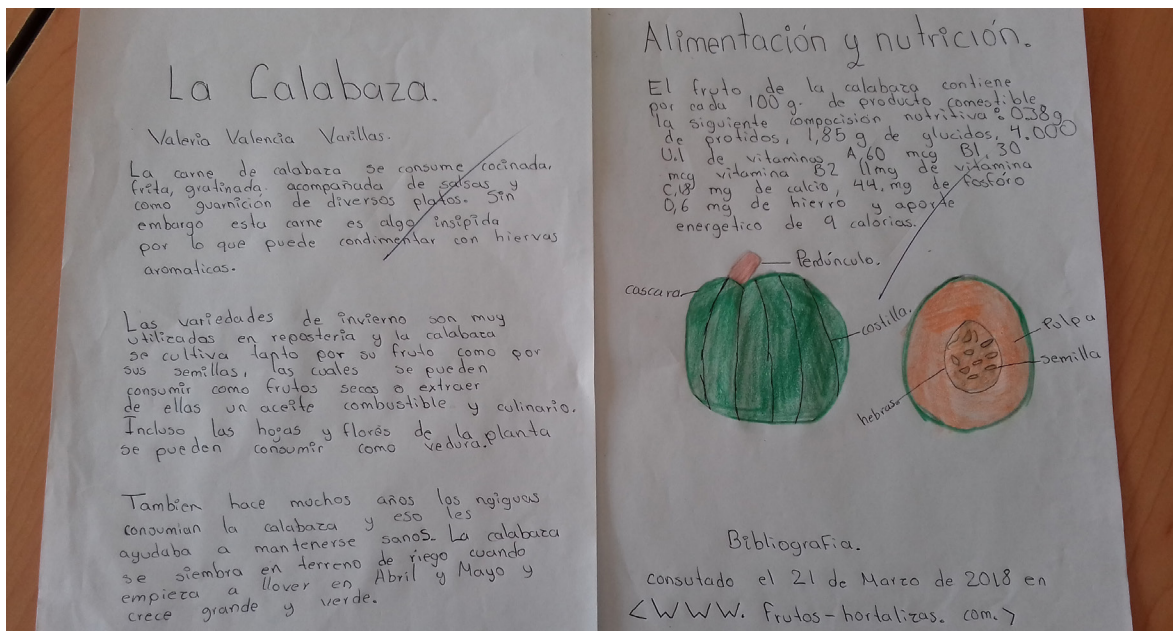 La Calabaza.
Valeria Valencia Varillas.
La carne de calabaza se consume cocinada,
frita, gratinada. acompañada de salsas y
como guarnición de diversos platos. Sin
embargo esta carne es algo insipida
por lo que puede condimentar con hiervas
aromaticas.
Las variedades de invierno son muy
utilizadas en reposteria y la calabaza
se cultiva tanto por su fruto como por
sus semillas, las cuales se pueden
consumir como frutos secos o extraer
de ellas un aceite combustible y culinario.
Incluso las hojas y flores de la planta
se pueden consumir como vedura.
Tambien hace muchos años los ngiguas
consumian la calabaza y eso les
ayudaba a mantenerse sanos. La calabaza
se siembra en terreno de riego cuando
empieza a llover en Abril y Mayo y
crece grande y verde.
Alimentación y nutrición.
El fruto de la calabaza contiene
por cada 100 g. de producto comestible
la siguiente compocisión nutritiva: 0.38g
de protidos, 1,85 g de glucidos, 4.000
U.I de vitaminas A,60 mcg B1, 30
mcg vitamina B2 11mg de vitamina
C,18 mg de calcio, 44, mg de fosfóro
0,6 mg de hierro y aporte
energetico de 9 calorias.
Perdúnculo.
cascara
costilla.
Pulpa
semilla
hebras
Bibliografia.
consutado el 21 de Marzo de 2018 en
<WWW. frutos-hortalizas. com.>